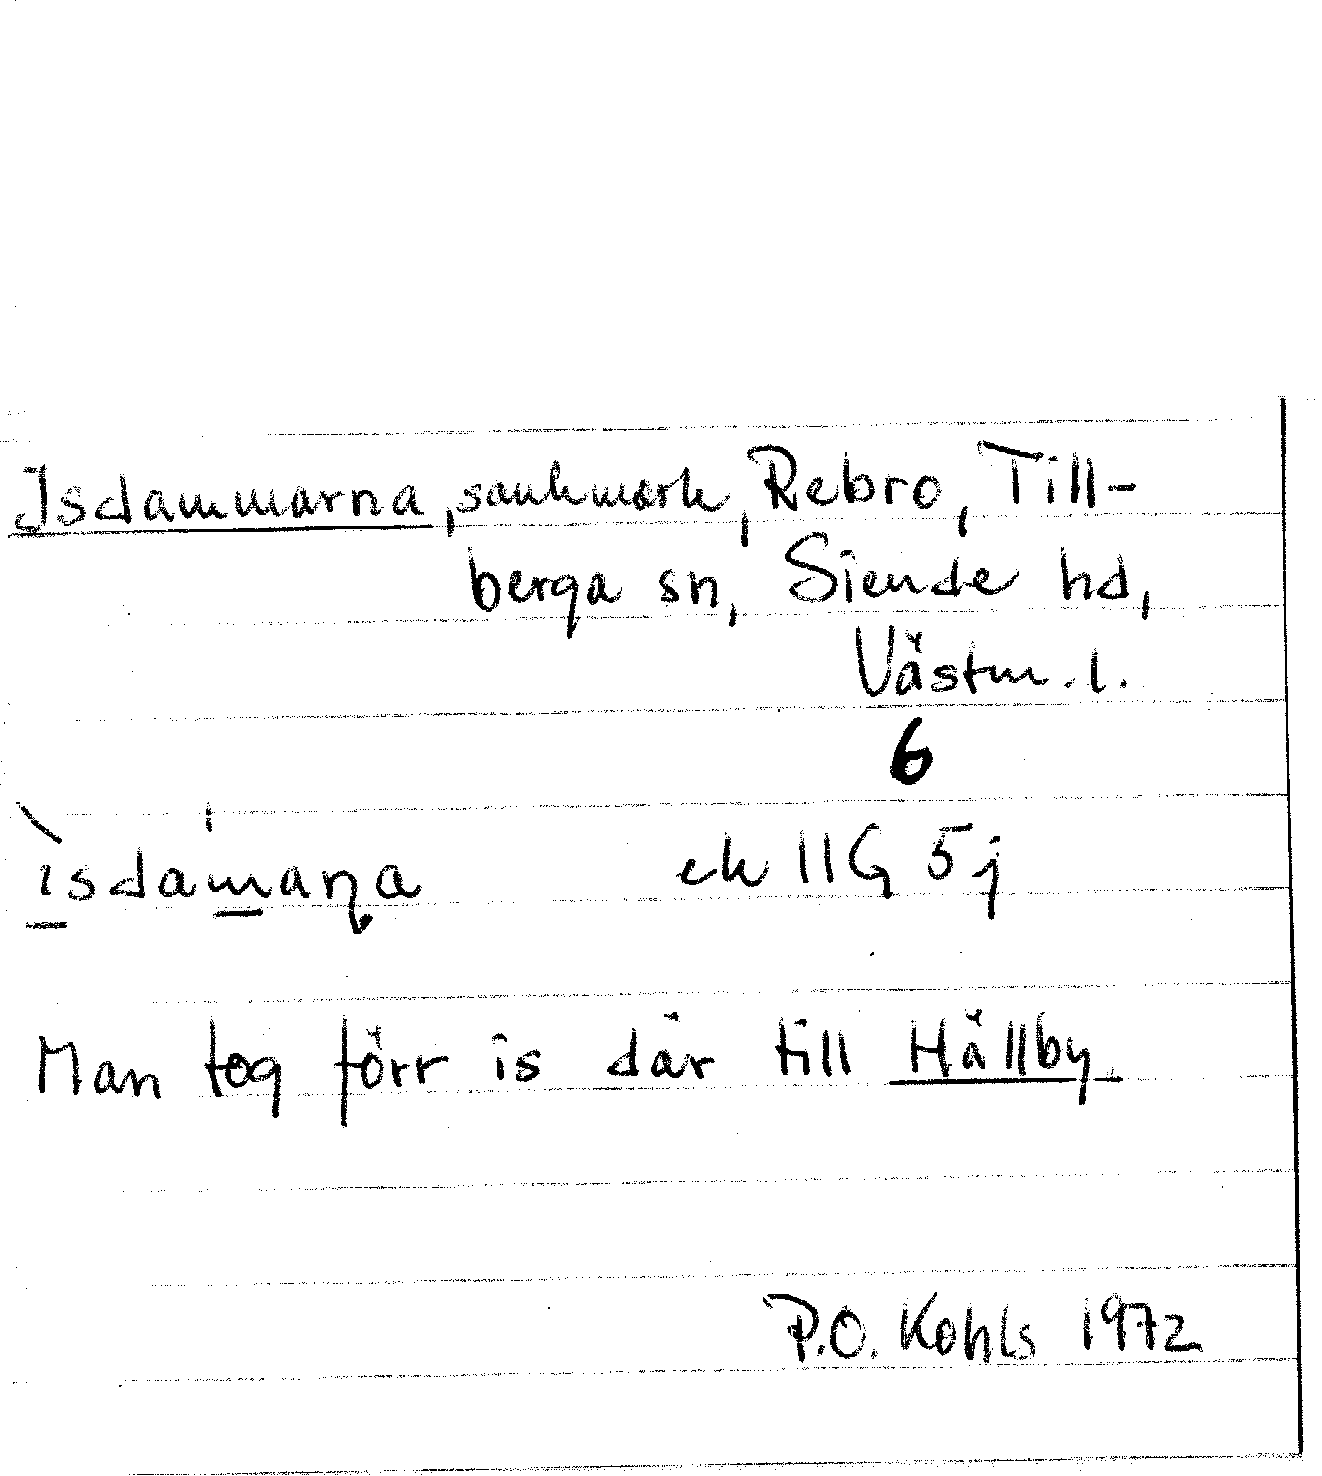 Isdammarna, sankmark, Rebro, Till-
berga sn, Siende hd,
Västm. l.
6
ìsdamaṇa ek 11G 5j
Man tog förr is där till Hällby
P.O. Kohls 1972